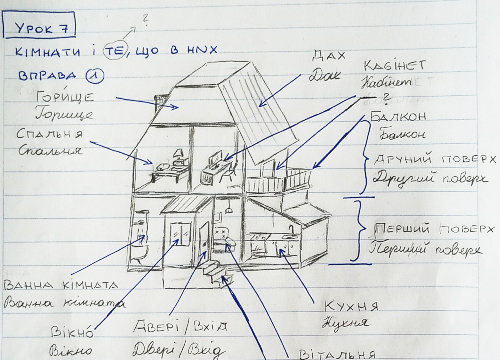 ?
УРОК 7
КІМНАТИ І ТЕ, ЩО В НИХ
ВПРАВА 1
ГОРИ́ЩЕ
Горище
СПАЛЬНЯ
Спальня
ДАХ
Дах
КАБІНЕТ
Кабінет
?
БАЛКОН
Балкон
ДРУГИЙ ПОВЕРХ
Другий поверх
ПЕРШИЙ ПОВЕРХ
Перший поверх
ВАННА КІМНАТА
Ванна кімната
ВІКНО́
Вікно
ДВЕРІ/ВХІД
Двері/Вхід
КУХНЯ
Кухня
ВІТАЛЬНЯ